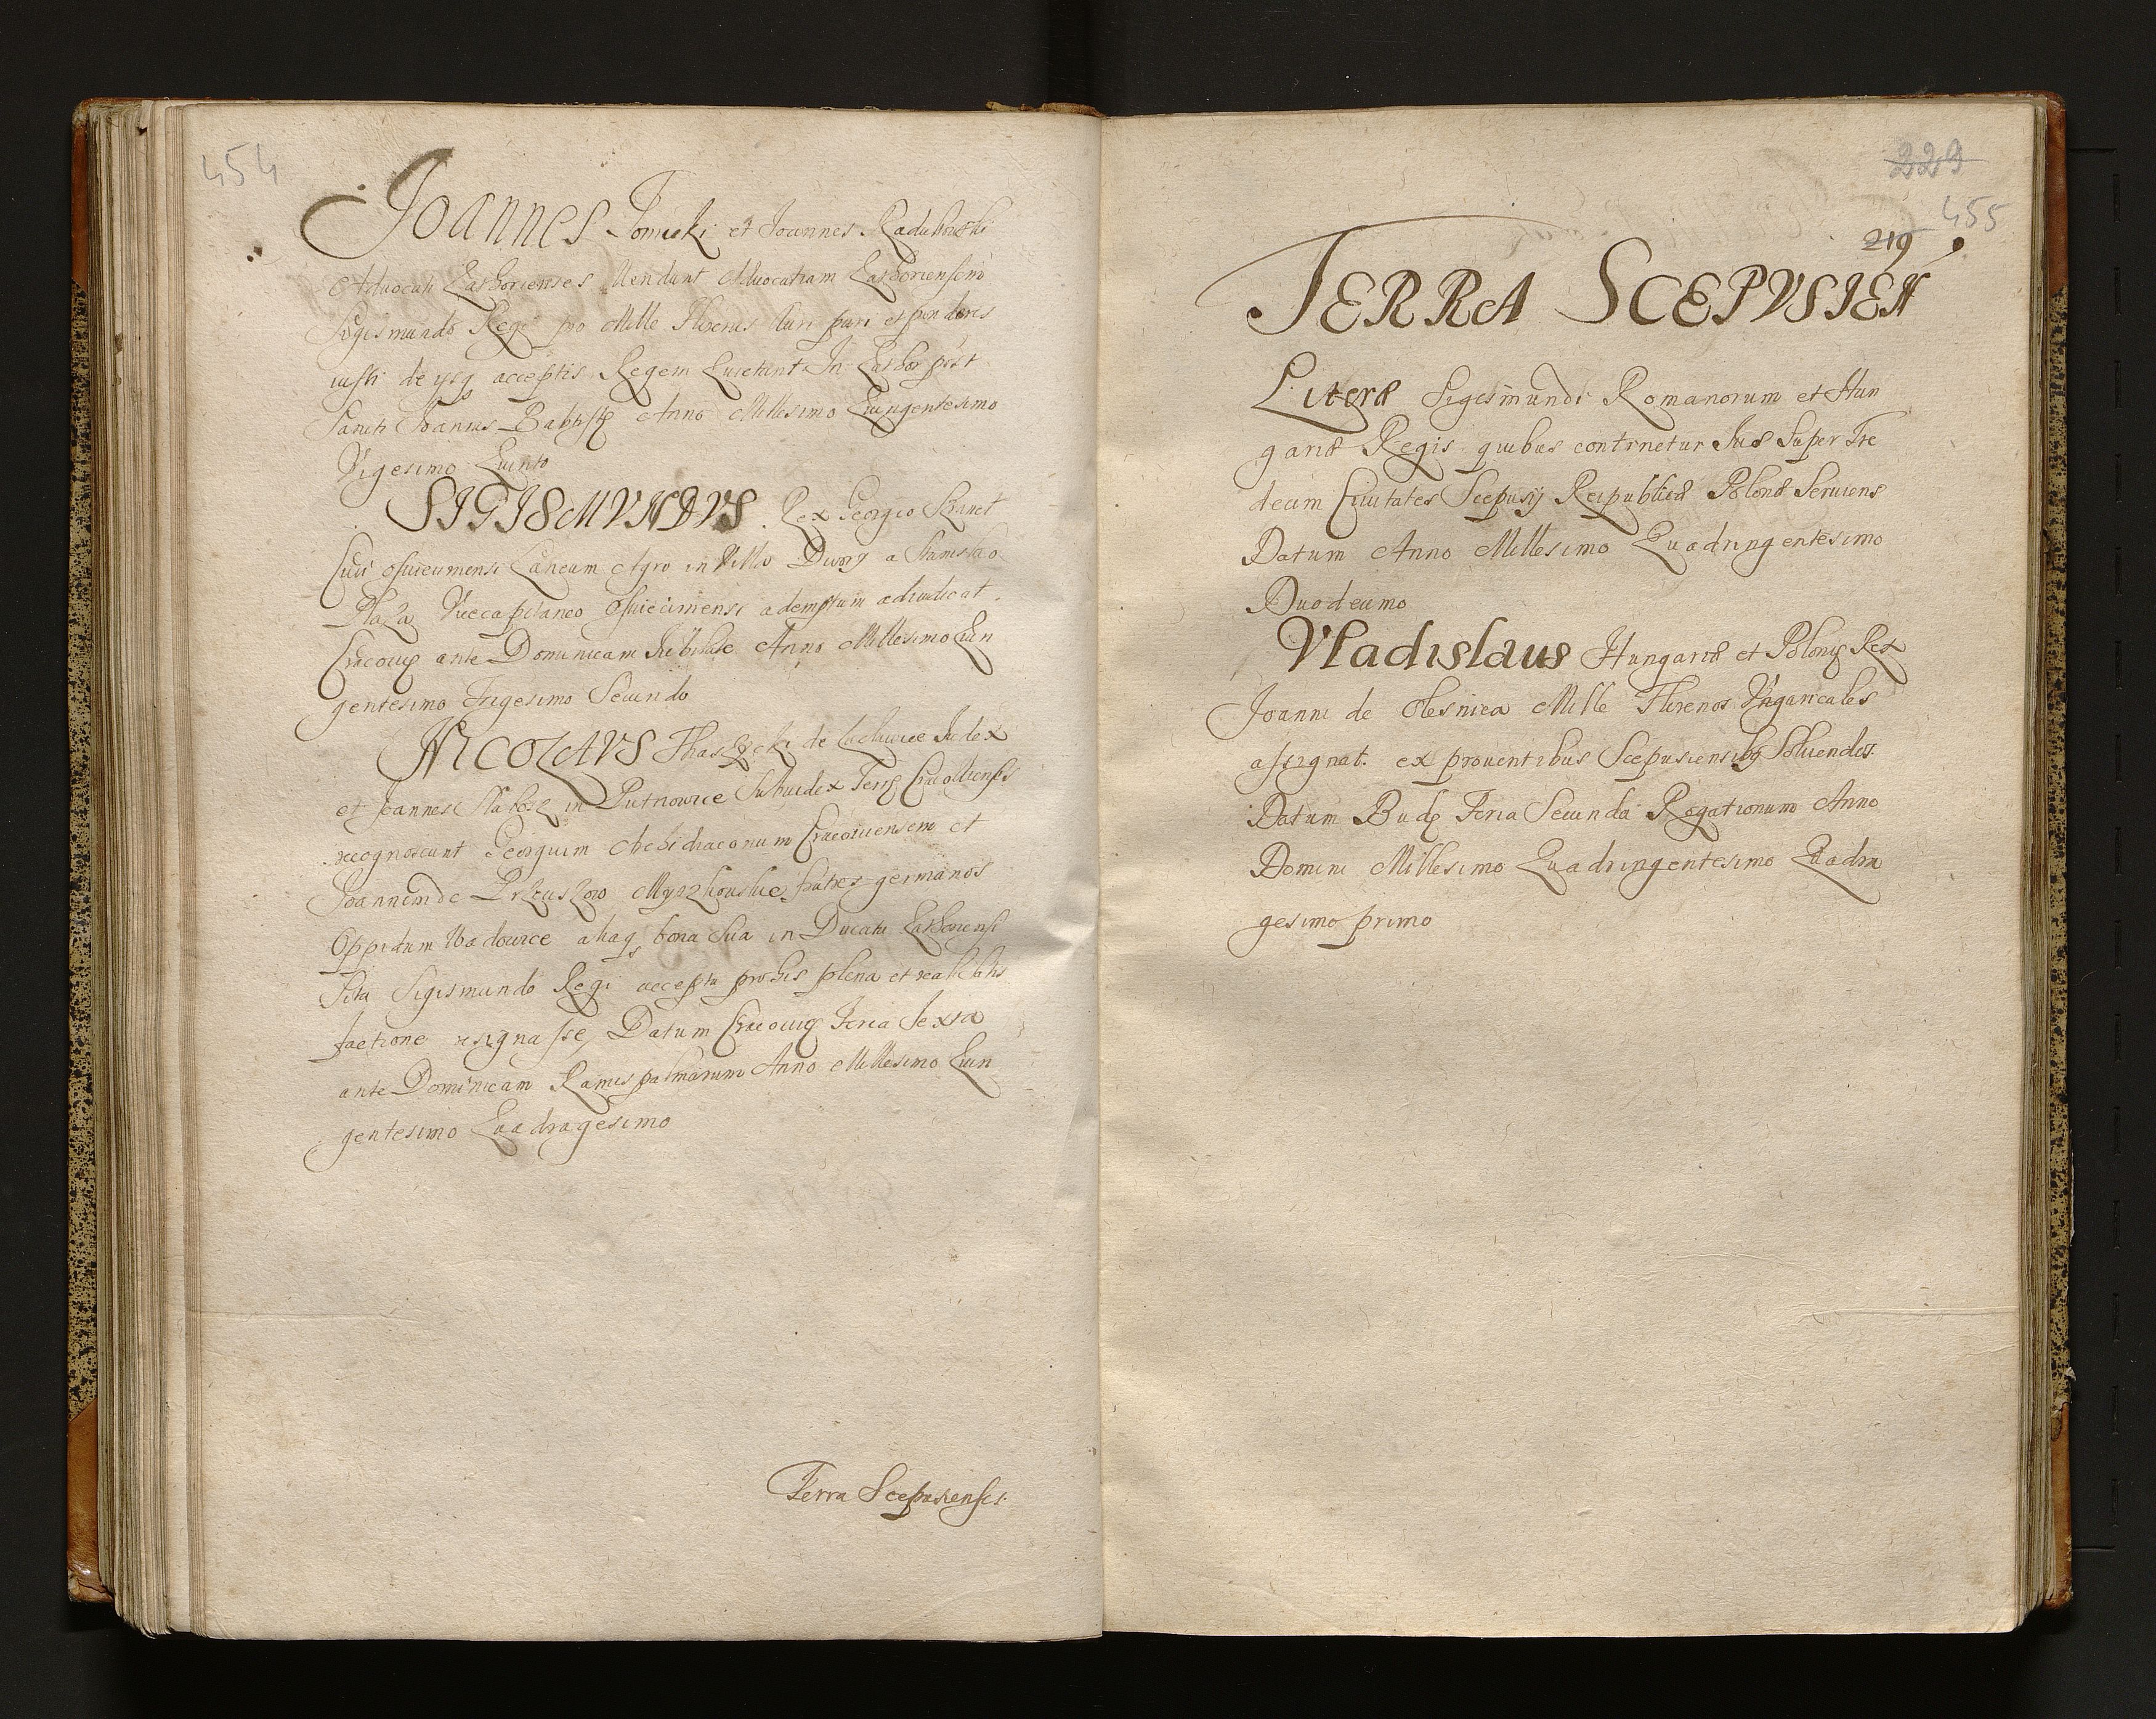 454
Joannes Tomicki et Joannes Raduhowski
Aduocati Zathorienses Vendunt Aduocatiam Zathoriensem
Sigismundo Regi pro Mille Florenis Auri puri et ponderis
iusti de ysq acceptis Regem Quietant In Zathor post
Sancti Joannis Baptistę Anno Millesimo Quingentesimo
Vigesimo Quinto
SIGISMVNDVS Rex Georgio
Ciui Osuiecimensi Laneum Agro in Villa Dwory a Stanislao
Plaza Vicecapitaneo Osuiecimensi ademptum adiudicat.
Cracouię ante Dominicam Jubilate Anno Millesimo Quin
gentesimo Trigesimo Secundo
NICOLAVS de Judex
et Joannes in Putnowice Subiudex Terrę
recognoscunt Georgium Archidiaconum Cracouiensem et
Joannem de Przeciszow Myszkouskie fratres germanos
Oppidum Wadowice aliaq bona Sua in Ducatu Zathoriensi
Sita Sigismundo Regi accepta pro his plena et reali Satis
factione resignasse, Datum Cracouię Feria Sexta
ante Dominicam Ramis palmarum Anno Millesimo Quin
gentesimo Quadragesimo
Terra Scepusiensis.
229
455
219
TERRA SCEPVSIEN
Literæ Sigismundi Romanorum et Hun
gariæ Regis quibus continetur Jus Super Tre
decim Ciuitates Scepusij Reipublicæ Polonæ Seruiens
Datum Anno Millesimo Quadringentesimo
Duodecimo
Vladislaus Hungariæ et Polonię Rex
Joanni de Olesnica Mille Florenos Vngaricales
assignat. ex prouentibus Scepusiensibq Soluendos.
Datum Budę Feria Secunda Rogationum Anno
Domini Millesimo Quadringentesimo Quadra
gesimo primo